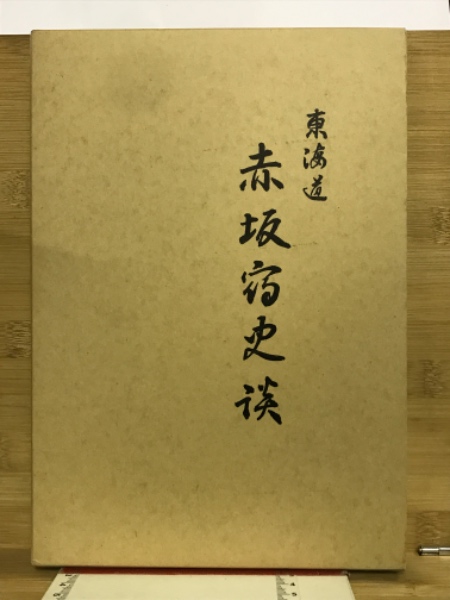 東海道
赤坂宿史談